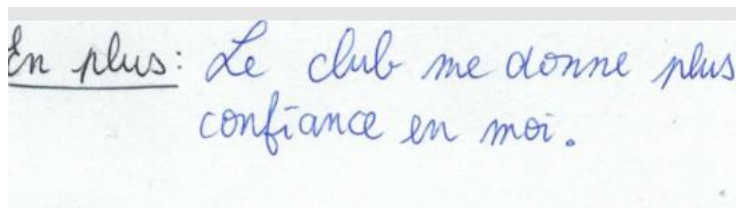 En plus: Le club me donne plus
confiance en moi.